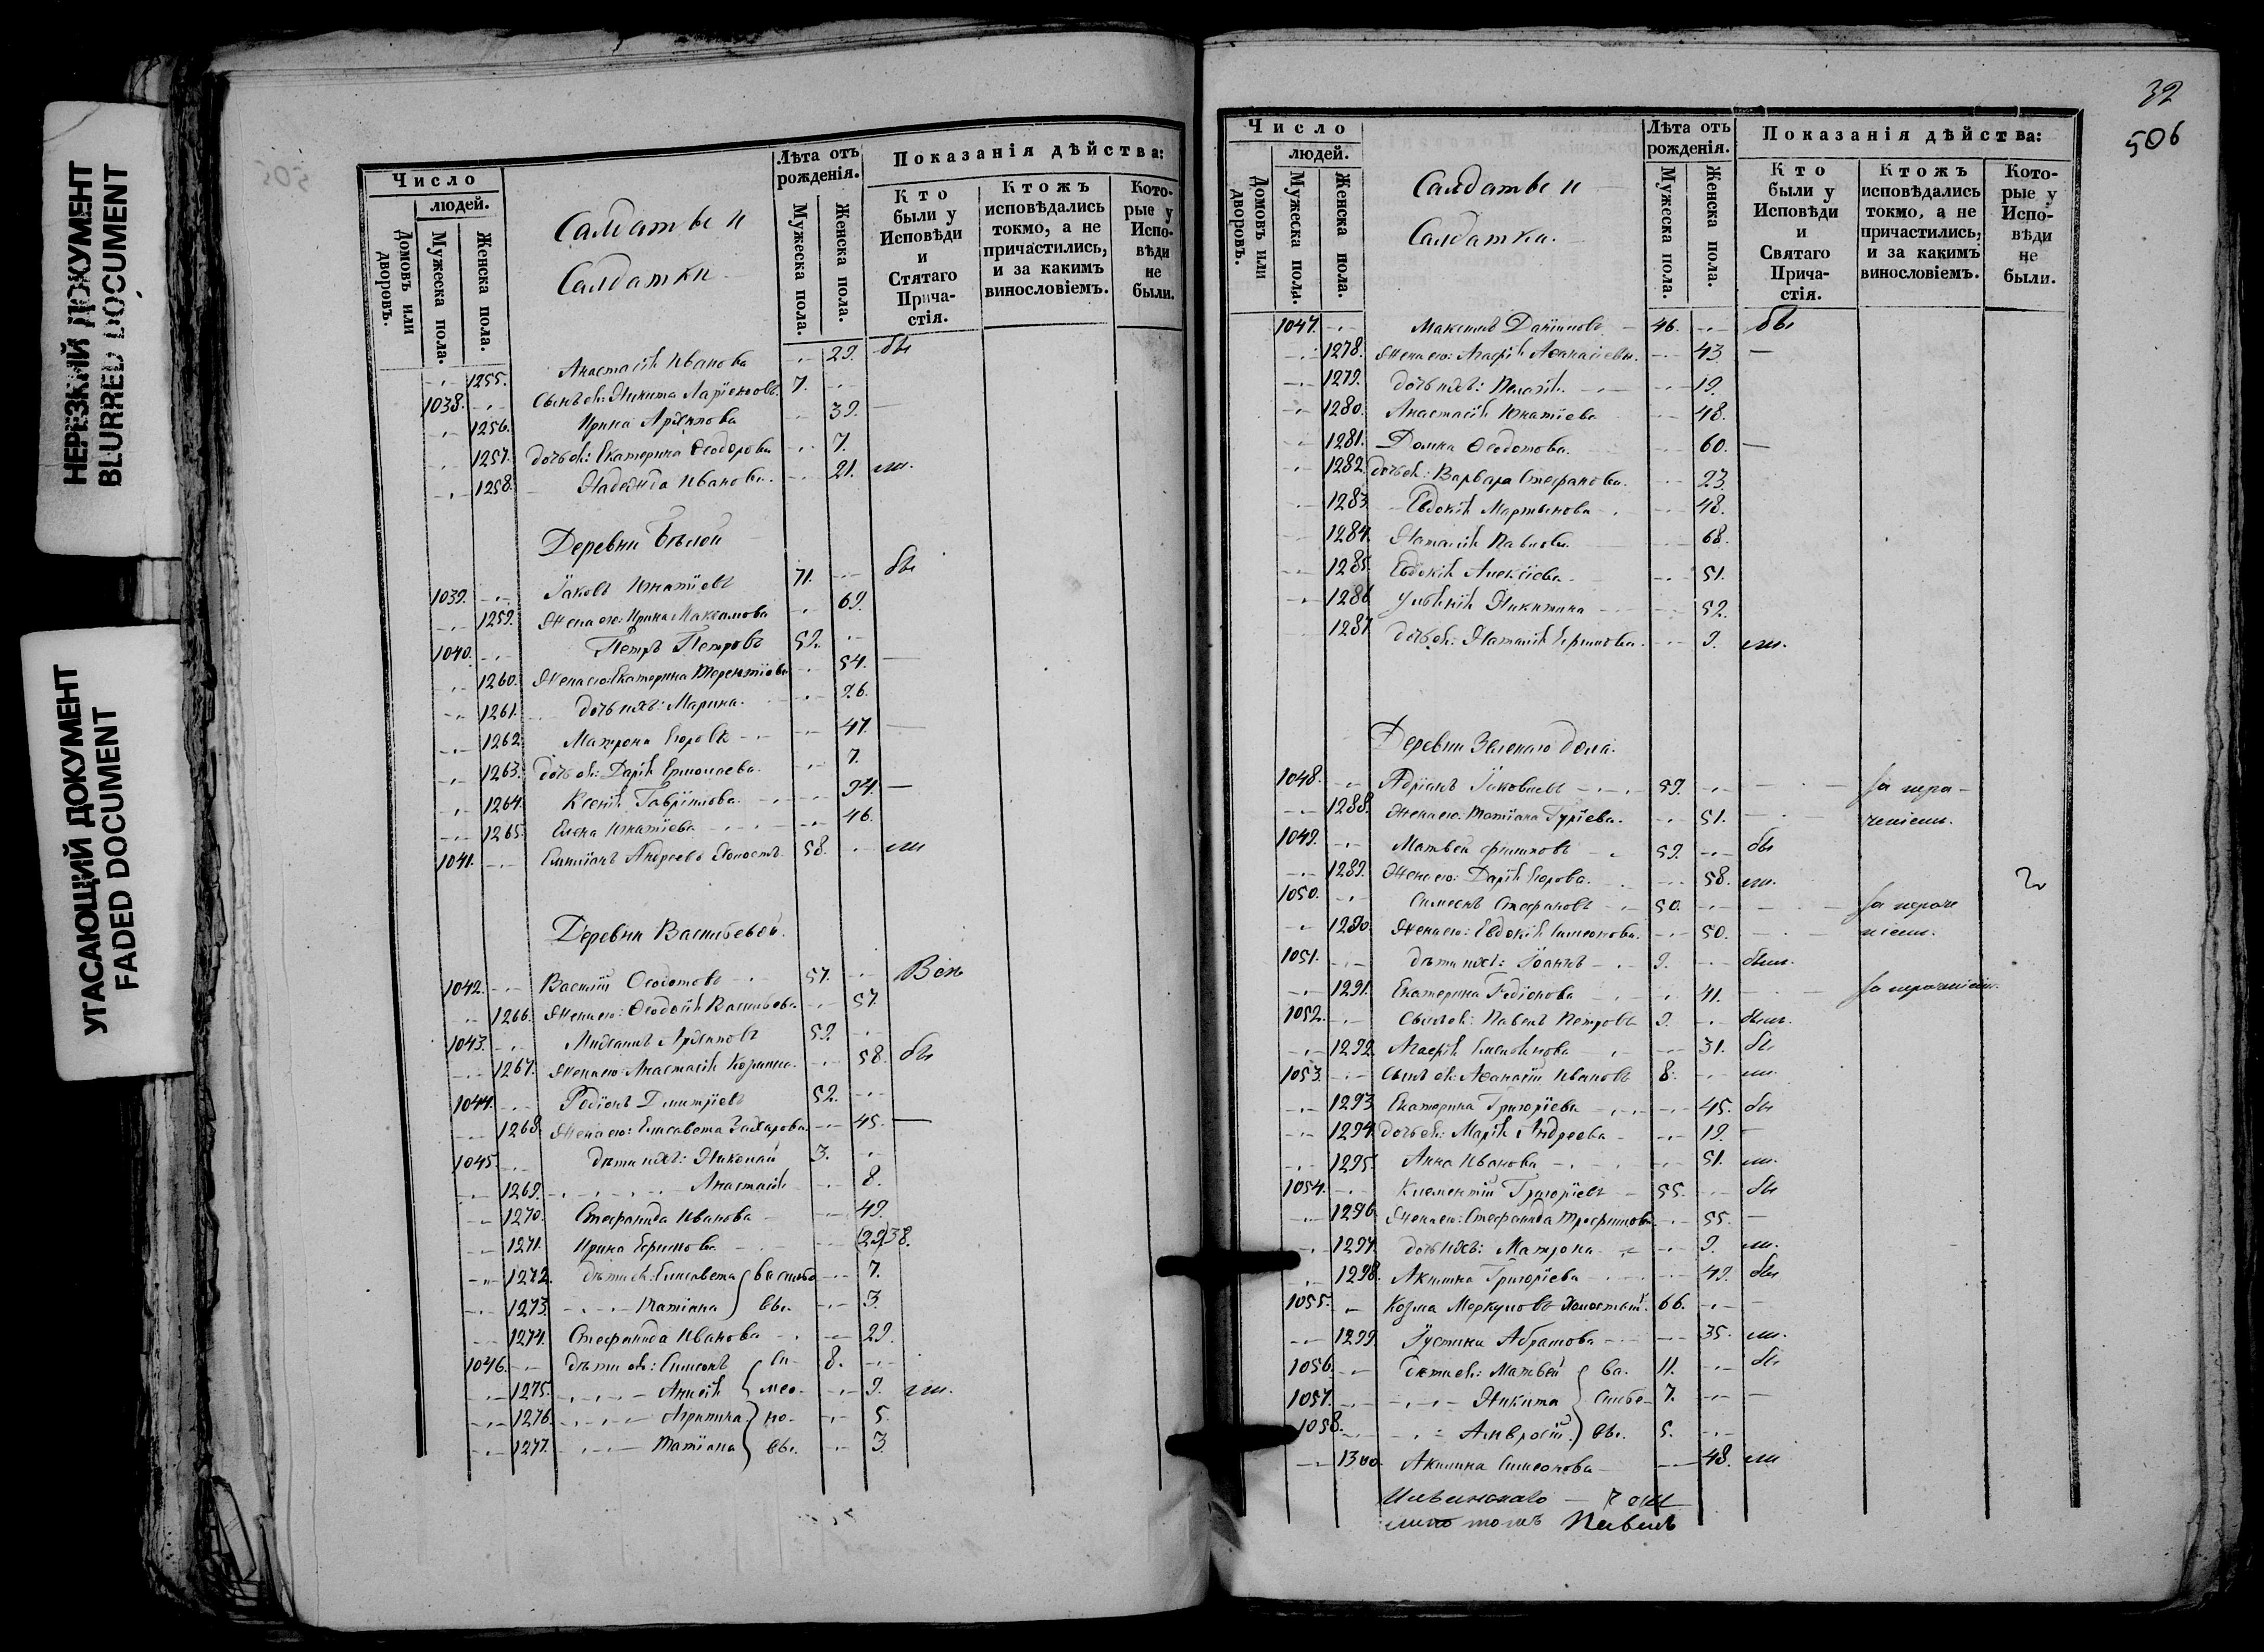 НЕРЕЗКИЙ ДОКУМЕНТ
BLURRED DOCUMENT
УГАСАЮЩИЙ ДОКУМЕНТ
FADED DOCUMENT
Число
людей.
Домовъ или дворовъ.
Мужеска пола.
Женска пола.
Салдаты и
Салдатки
Лѣта отъ рожденія.
Мужеска пола.
Женска пола.
Показанія дѣйства:
Кто были у Исповѣди и Святаго Прича-стія.
Ктожъ исповѣдались токмо, а не причастились, и за какимъ винословіемъ.
Кото-рые у Испо-вѣди не были.
1255. Анастасія Иванова 29. бы
1038. Сынъ ея: Никита Ларіоновъ 7.
1256. Ирина Архипова 39.
1257. дочь ея: Екатерина Ѳеодорова 7.
1258. Надежда Иванова. 21. ли.
Деревни Бѣлой
1039. Іаковъ Игнатіевъ 71. бы
1259. Жена его: Ирина Максимова 69.
1040. Петръ Петровъ 52.
1260. Жена его: Екатерина Терентіева 54.
1261. дочь ихъ: Марина. 26.
1262. Матрона Егорова 47.
1263. дочь ея: Дарія Ермолаева. 7.
1264. Ксенія Гавріилова. 94.
1265. Елена Игнатіева 46.
1041. Емиліанъ Андреевъ Холостъ. 58. ли
Деревни Васильевой.
1042. Василій Ѳеодотовъ 57.
1266. Жена его: Ѳеодосія Васильева. 57.
1043. Михаилъ Архиповъ 59.
1267. Жена его Анастасія Козмина. 58. бы
1044. Родіонъ Димитріевъ 52.
1268. Жена его: Елисавета Захарова. 45.
1045. дѣти ихъ: Николай 3.
1269. Анастасія 8.
1270. Стефанида Иванова 49.
1271. Ирина Ефимова. (29) 38.
1272. дѣти ея: Елисавета Василье 7.
1273. Татіана вы. 3.
1274. Стефанида Иванова 29.
1046. дѣти ея: Симеонъ Си- 8.
1275. Анисія мео- 9. ли.
1276. Агрипина но- 5.
1277. Татіана вы. 3.
32
506
Число
людей.
Домовъ или дворовъ.
Мужеска пола.
Женска пола.
Салдаты и
Салдатки.
Лѣта отъ рожденія.
Мужеска пола.
Женска пола.
Показанія дѣйства:
Кто были у Исповѣди и Святаго Прича-стія.
Ктожъ исповѣдались токмо, а не причастились, и за какимъ винословіемъ.
Кото-рые у Испо-вѣди не были.
1047. Максимъ Даніиловъ 46. бы
1278. Жена его: Агафія Аѳанасіева. 43
1279. дочь ихъ: Пелагія. 19.
1280. Анастасія Игнатіева 48.
1281. Домна Ѳеодотова. 60.
1282. дочь ея: Варвара Стефанова. 23.
1283. Евдокія Мартынова 48.
1284. Наталія Павлова. 68.
1285. Евдокія Алексіева. 51.
1286. Уліянія Никитина 52.
1287. дочь ея: Наталія Ефимова. 9. ли.
Деревни Зеленаго дола.
1048. Адріанъ Іаковлевъ 59. За нера-
1288. Жена его: Татіана Гуріева. 51. ченіемъ.
1049. Матвей Филиповъ 59. бы
1289. Жена его: Дарія Егорова. 58. ли.
1050. Симеонъ Стефановъ 50. За нераче
1290. Жена его: Евдокія Симеонова. 50. ніемъ.
1051. дѣти ихъ: Іоаннъ 9. были.
1291. Екатерина Родіонова 41. За нераченіемъ.
1052. Сынъ ея: Павелъ Петровъ 9. были.
1292. Агафія Симеонова 31. бы
1053. Сынъ ея: Аѳанасій Ивановъ 8. ли.
1293. Екатерина Григоріева 45. бы
1294. дочь ея: Марія Андреева 19.
1295. Анна Иванова 51. ли.
1054. Климентій Григоріевъ 55. бы
1296. Жена его: Стефанида Трофимова 55.
1297. дочь ихъ: Матрона 9. ли.
1298. Акилина Григоріева 49. бы
1055. Козма Меркуловъ Холостый. 66.
1299. Іустина Абрамова 35. ли.
1056. дѣти ея: Матвей Ва- 11. бы
1057. Никита силье- 7.
1058. Амвросій вы. 5.
1300. Акилина Симеонова 48. ли
Павелъ